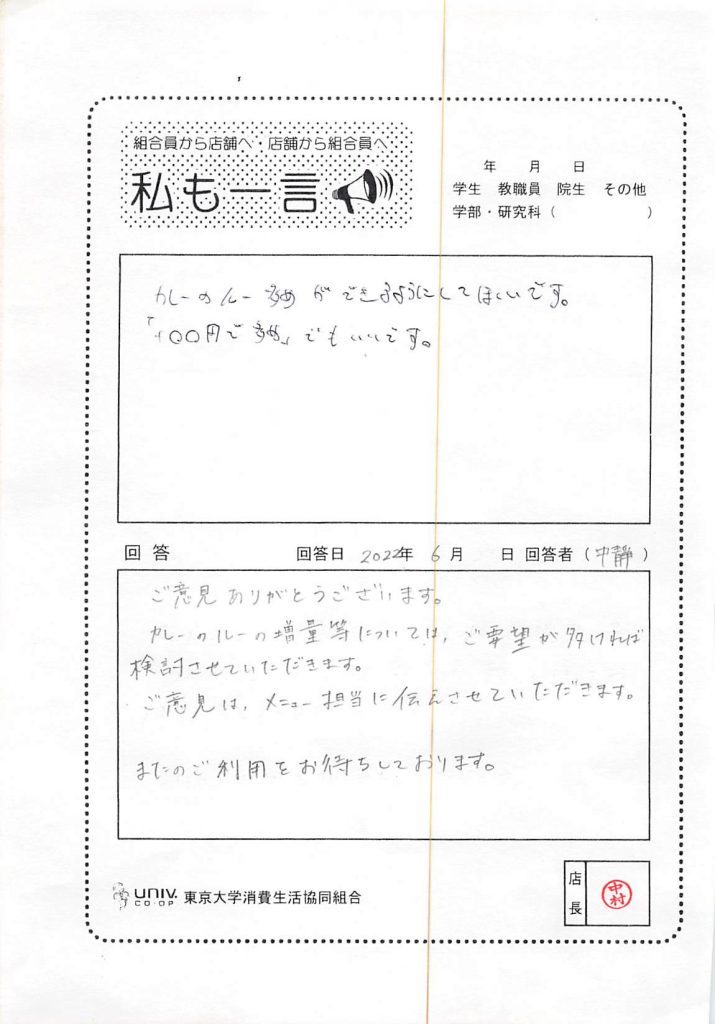 組合員から店舗へ・店舗から組合員へ
私も一言
年 月 日
学生 教職員 院生 その他
学部・研究科（ ）
カレーのルー多めができるようにしてほしいです。
「+〇〇円で多め」でもいいです。
回答 回答日 2022年 6月 日 回答者（中静）
ご意見ありがとうございます。
カレーのルーの増量等については、ご要望が多ければ
検討させていただきます。
ご意見は、メニュー担当に伝えさせていただきます。
またのご利用をお待ちしております。
UNIV. CO-OP 東京大学消費生活協同組合
店長
中村